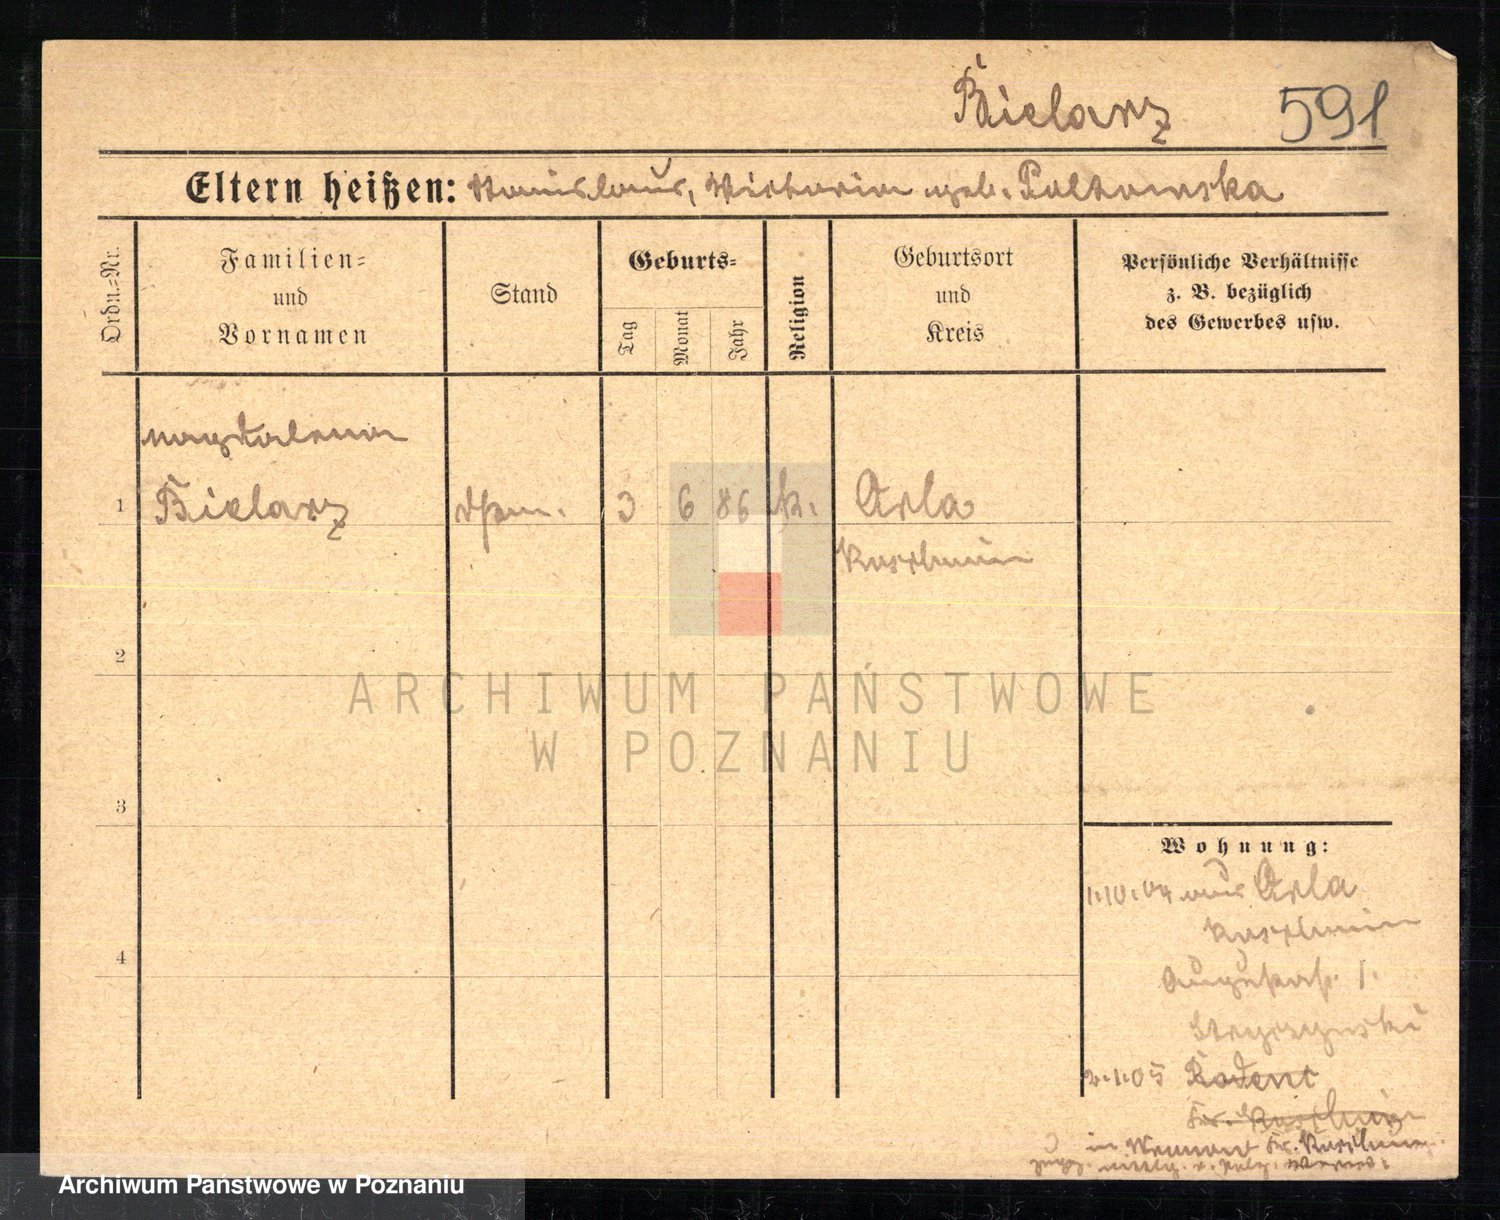 Bielarz 591
Eltern heißen: Stanislaus, Victoria geb. Paltowska
Ordn.=Nr.
Familien=
und
Vornamen
Stand
Geburts=
Tag
Monat
Jahr
Religion
Geburtsort
und
Kreis
Persönliche Verhältnisse
z. B. bezüglich
des Gewerbes usw.
Magdalena
1 Bielarz 3 6 86 k. Orla
Koschmin
2
ARCHIWUM PAŃSTWOWE
W POZNANIU
3
Wohnung:
1.10.04 aus Orla
Koschmin
4
Augustastr. 1.
2.1.05
Kr. Koschmin
in Kr. Koschmin
Archiwum Państwowe w Poznaniu